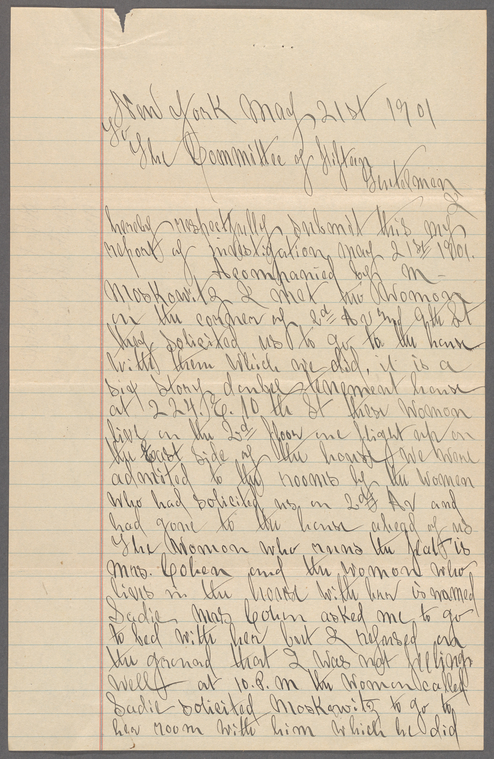 New York May 21st 1901
To
The Committee of fifteen
Gentelmen I
hereby respectfully submit this my
report of investigation May 21st 1901.
Accompanied by M-
Moskowitz I met two Women
on the corner of 2d Av and 9th St
they solicited us to go to the house
with them which we did, it is a
six story double tenement house
at 224. E. 10 th St these Women
live on the 2d floor one flight up on
the East side of the house, we were
admited to the rooms by the Women
who had solicited us on 2d Av and
had gone to the house ahead of us.
The Woman who runs the flat is
Mrs. Cohen and the woman who
lives in the house with her is named
Sadie Mrs Cohen asked me to go
to bed with her but I refused on
the ground that I was not feeling
well at 10. P. M the Woman called
Sadie solicited Moskowitz to go to
her room with him which he did